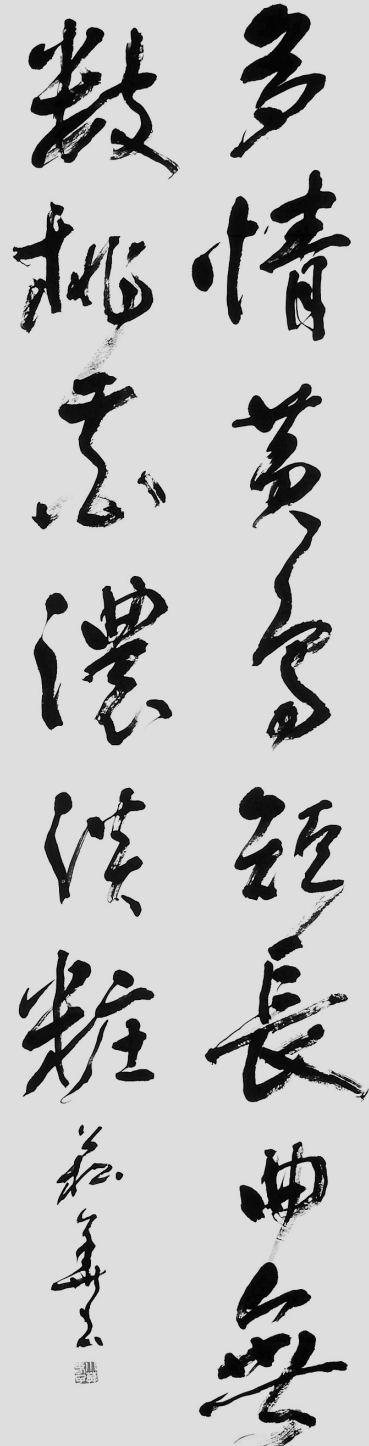 多情黄鳥短長曲無
數桃花濃淡粧
菘華書